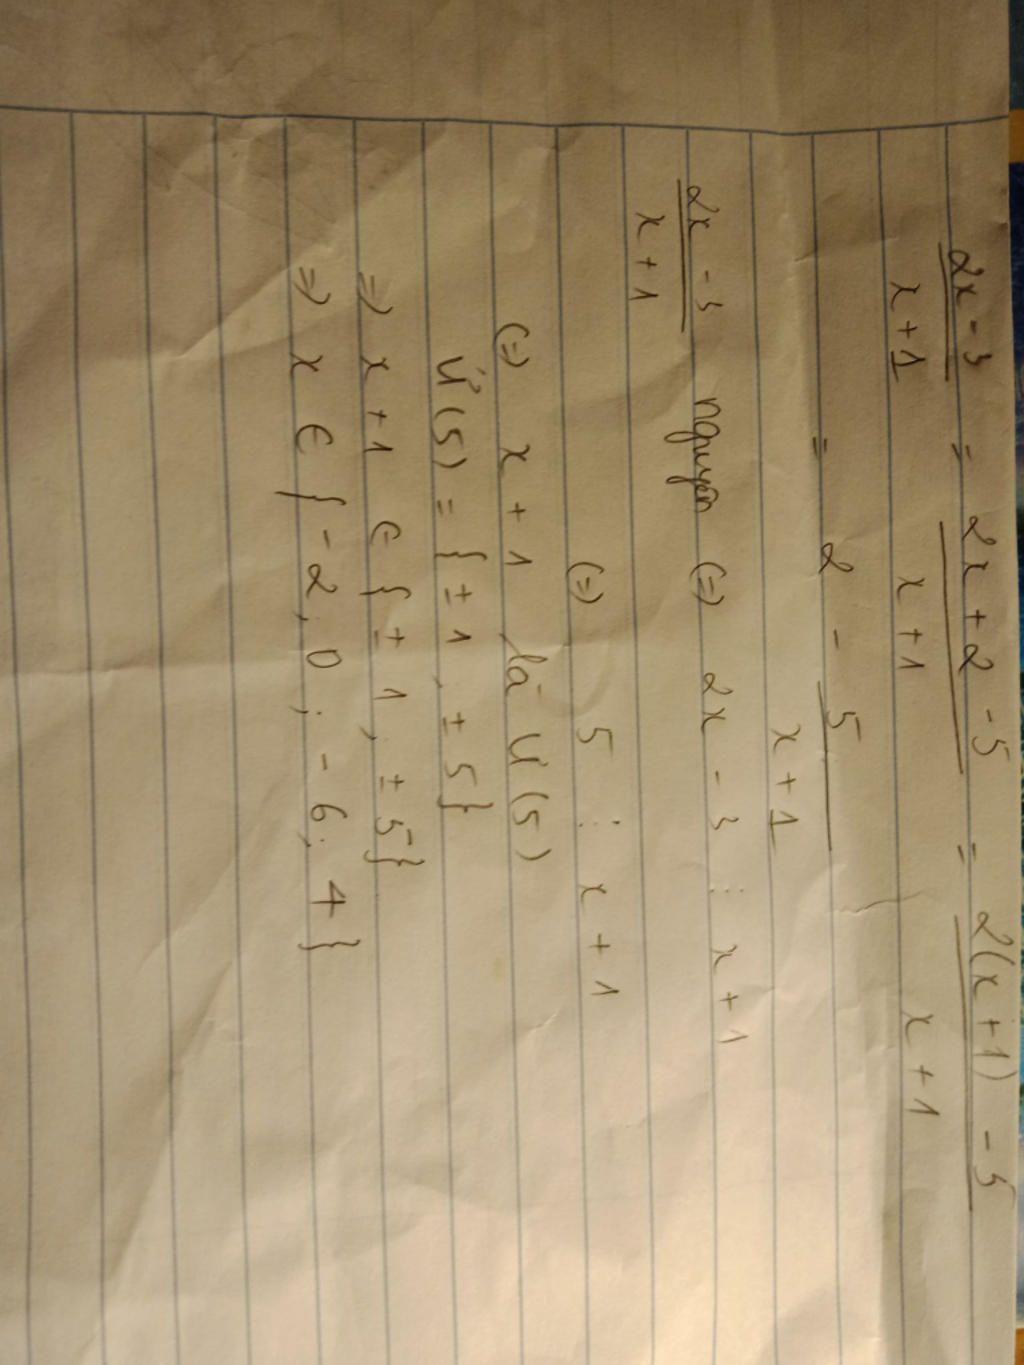 2x - 3 / x + 1 = 2x + 2 - 5 / x + 1 = 2(x + 1) - 5 / x + 1
= 2 - 5 / x + 1
2x - 3 / x + 1 nguyên (=) 2x - 3 ⋮ x + 1
(=) 5 ⋮ x + 1
(=) x + 1 là Ư(5)
Ư(5) = { ± 1, ± 5}
=) x + 1 ∈ { ± 1, ± 5}
=) x ∈ { -2; 0; -6; 4}